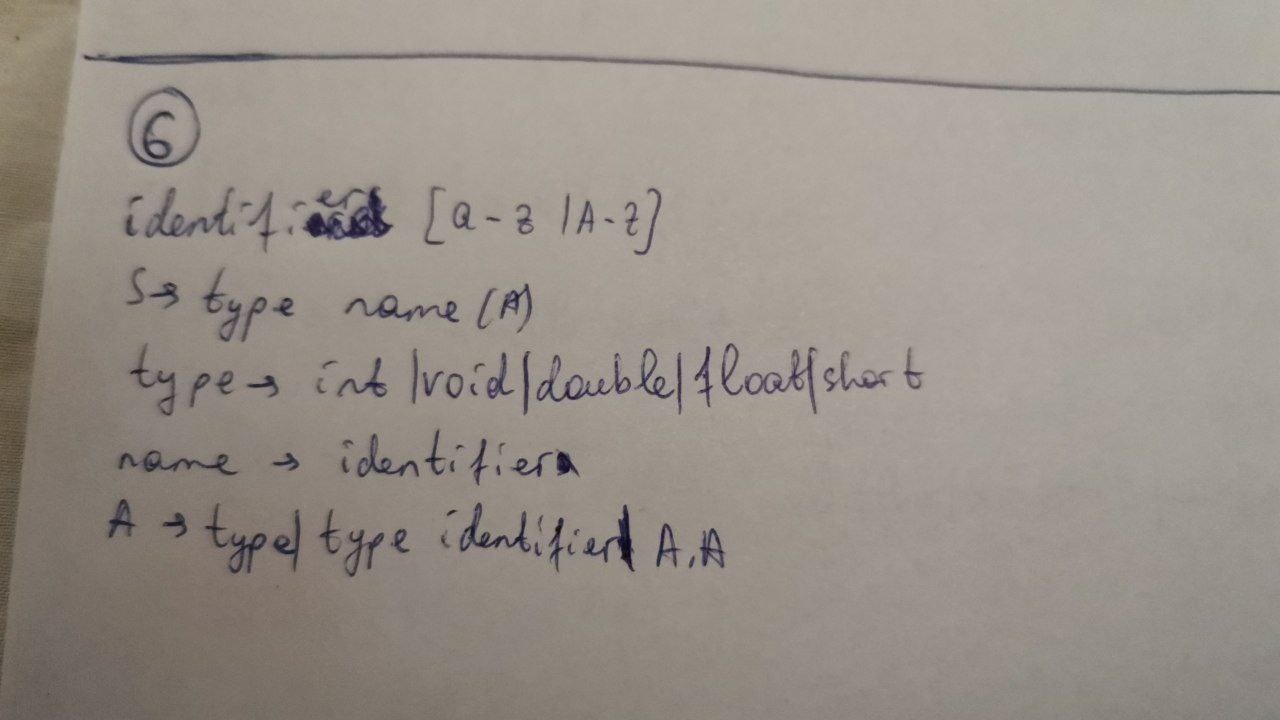 6
identifier [a-z |A-Z]
S→ type name (A)
type → int |void|double|float|short
name → identifier
A → type| type identifier| A,A